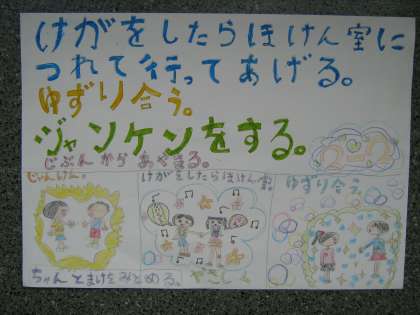 けがをしたらほけん室に
つれて行ってあげる。
ゆずり合う。
ジャンケンをする。
じぶんからあやまる。
2-2
じゃんけん。
けがをしたらほけん室。
ゆずり合う。
ちゃんとまけをみとめる。
やさしく